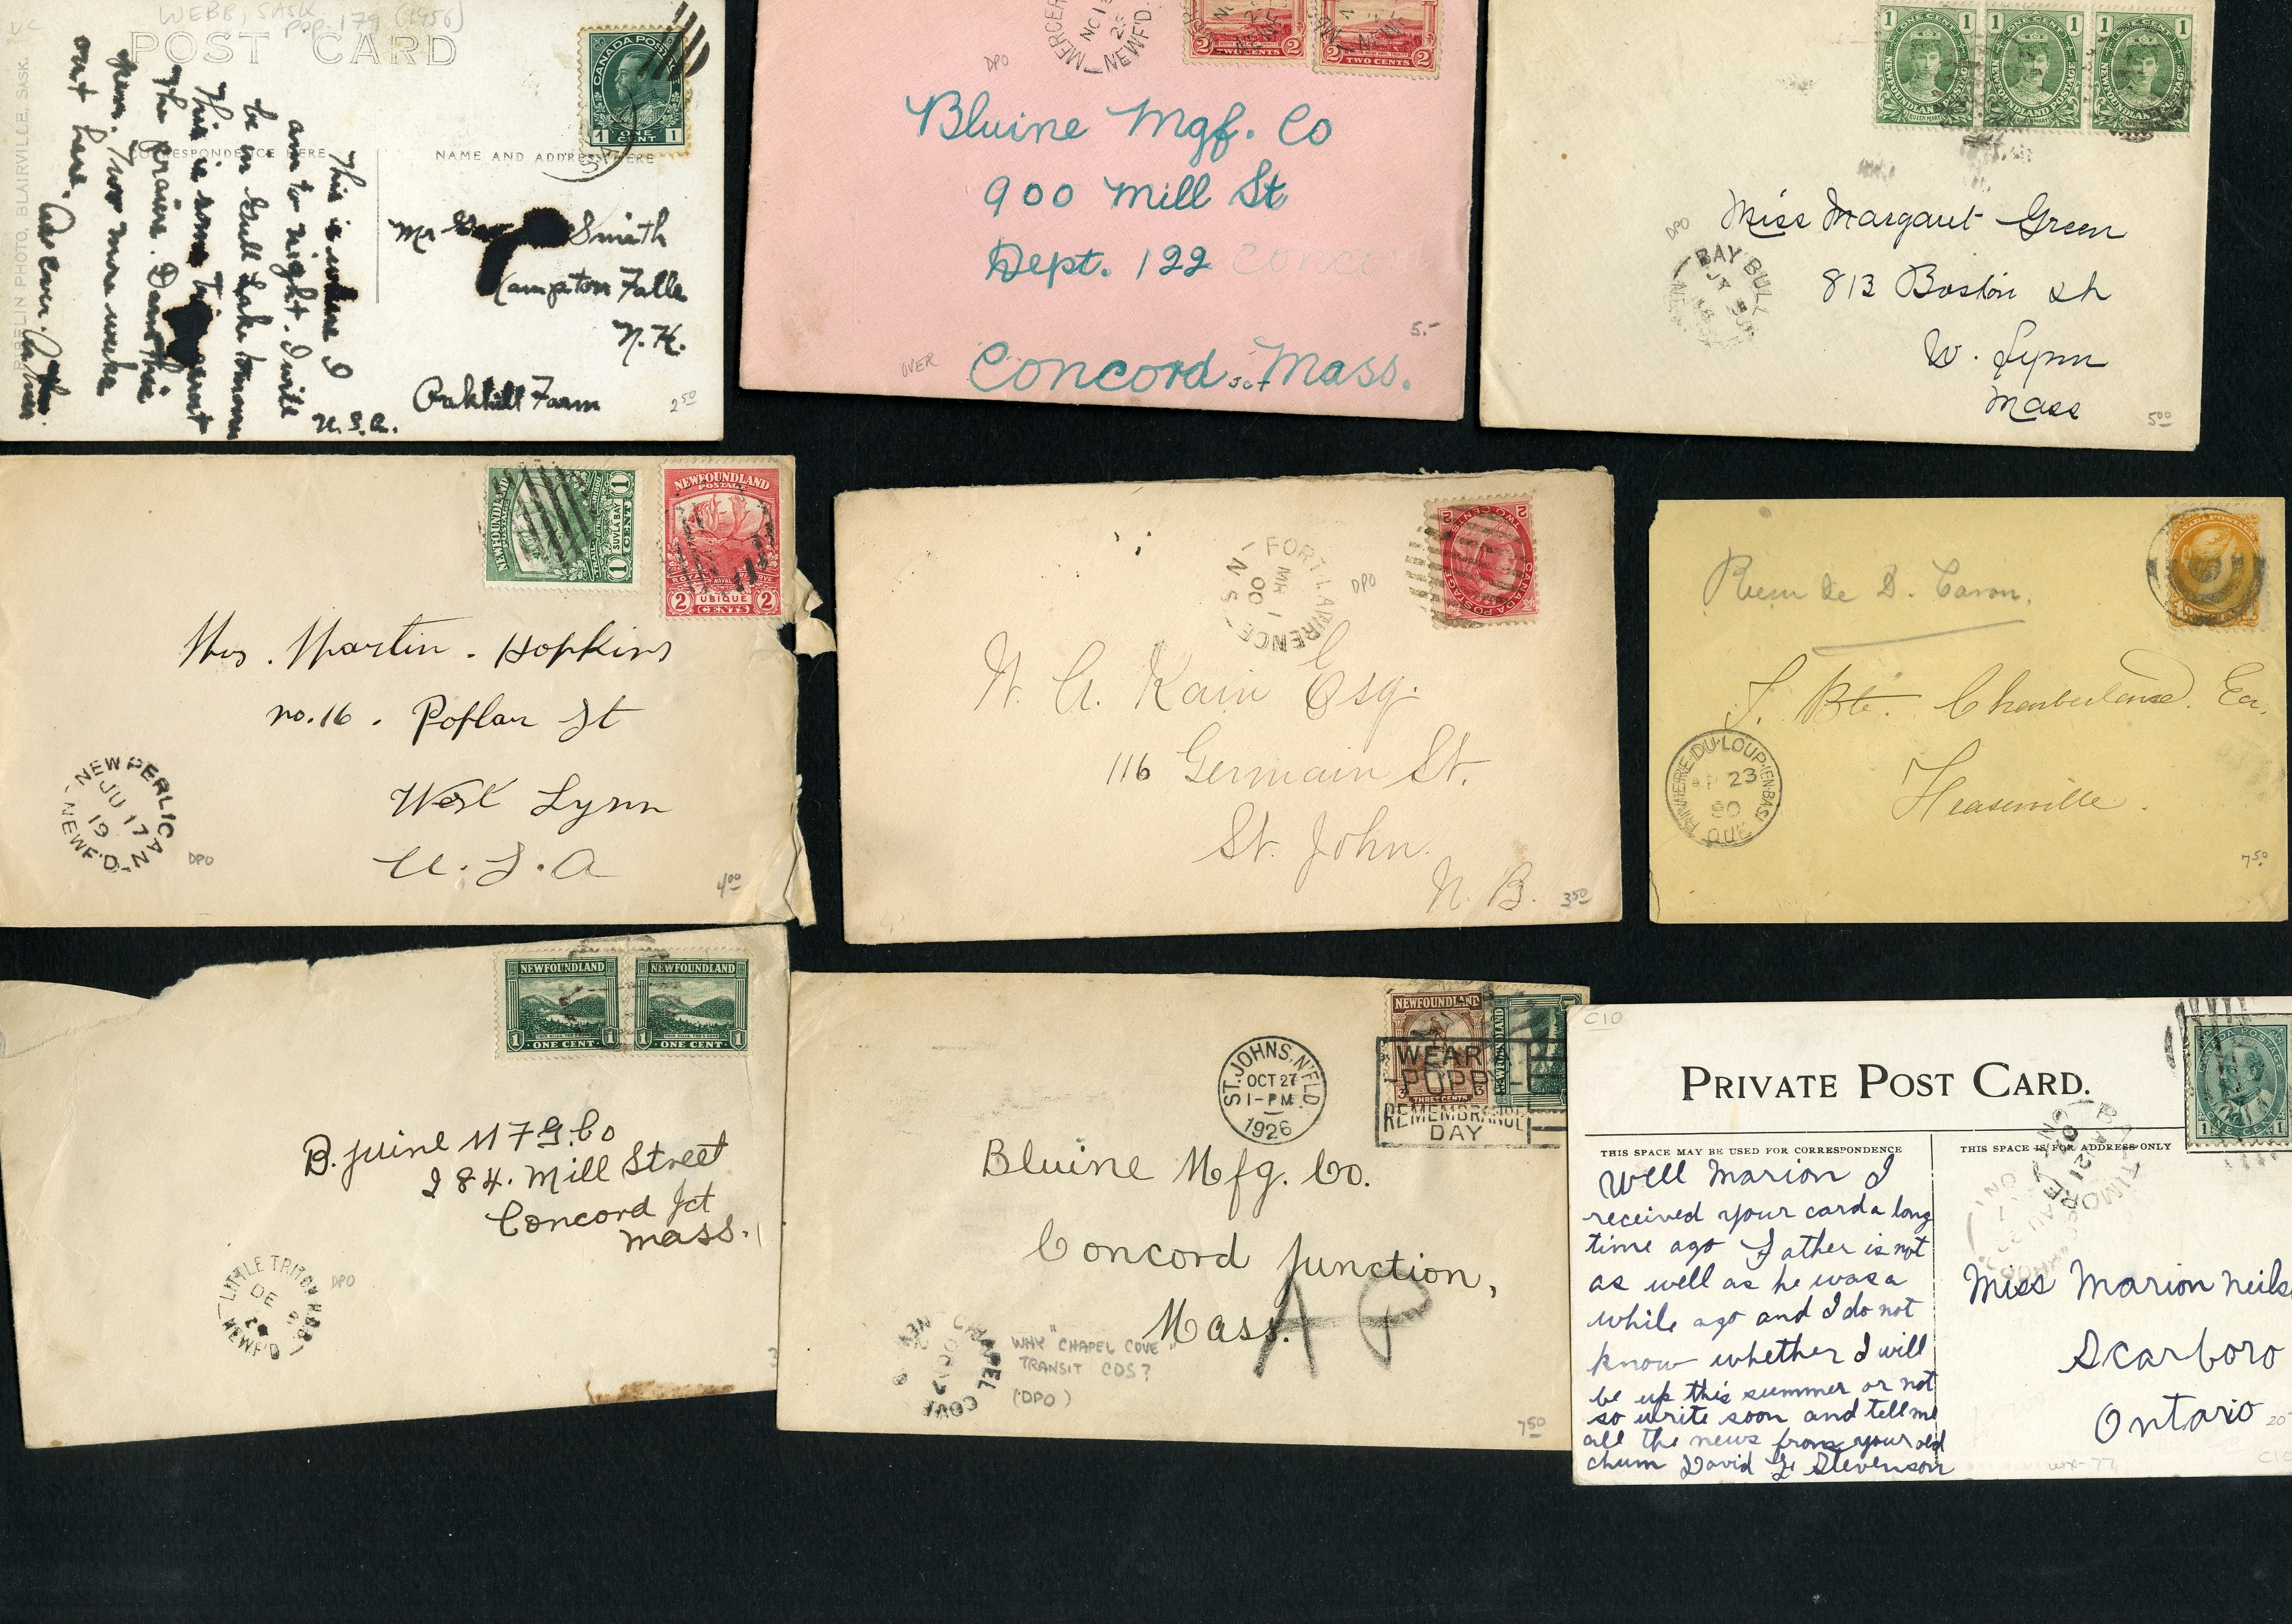 WEBB, SASK
pop. 179 (1956)
POST CARD
CANADA POSTAGE
1 ONE CENT 1
CORRESPONDENCE HERE
NAME AND ADDRESS HERE
PHOTO, BLAIRVILLE, SASK.
This is where I
am to night. I will
be in Gull Lake tomorrow
This is some
the prairie.
Two more weeks
out here. As ever
Mr Smith
Hampton Falls
N.H.
Oakhill Farm
U.S.A.
2.50
MERCER
NO 1
NEWF'D.
2 TWO CENTS 2
2 TWO CENTS 2
DPO
Bluine Mgf. Co
900 Mill St
Dept. 122
OVER
Concord Jct Mass.
5.-
1 ONE CENT 1
1 ONE CENT 1
1 ONE CENT 1
NEWFOUNDLAND POSTAGE
NEWFOUNDLAND POSTAGE
NEWFOUNDLAND POSTAGE
QUEEN MARY
QUEEN MARY
DPO
BAY BULL
Miss Margaret Green
813 Boston St
W. Lynn
Mass
5.00
NEWFOUNDLAND
SUVLA BAY
1 CENT 1
NEWFOUNDLAND
POSTAGE
UBIQUE
2 CENTS 2
Mrs. Martin. Hopkins
no. 16. Poplar St
West Lynn
U.S.A
NEW PERLICAN
JU 17
19
NEWF'D.
DPO
4.00
FORT LAWRENCE
MR 1
00
N S
DPO
TWO CENTS
CANADA POSTAGE
W. A. Kain Esq.
116 Germain St.
St. John.
N. B.
3.50
CANADA POSTAGE
de D. Caron.
J. Bte.
RIVIERE-DU-LOUP-(EN-BAS)
AP 23
90
QUE
Fraserville.
7.50
NEWFOUNDLAND
1 ONE CENT 1
NEWFOUNDLAND
1 ONE CENT 1
B. luine M F G. Co
284. Mill Street
Concord Jct
Mass.
LITTLE TRITON HBR
DE
NEWF'D
DPO
NEWFOUNDLAND
THREE CENTS
ST. JOHNS, N'FLD.
OCT 27
1-PM
1926
WEAR
POPPIES
REMEMBRANCE
DAY
Bluine Mfg. Co.
Concord Junction,
Mass.
AP
CHAPEL COVE
WHY "CHAPEL COVE"
TRANSIT CDS?
(DPO)
7.50
C10
PRIVATE POST CARD.
CANADA POSTAGE
1 ONE CENT 1
THIS SPACE MAY BE USED FOR CORRESPONDENCE
THIS SPACE IS FOR ADDRESS ONLY
Well Marion I
received your card a long
time ago Father is not
as well as he was a
while ago and I do not
know whether I will
be up this summer or not
so write soon and tell me
all the news from your old
chum David G Stevenson
BALTIMORE
21
07
ONT
Miss Marion Neils
Scarboro
Ontario
20
WX-77
C10